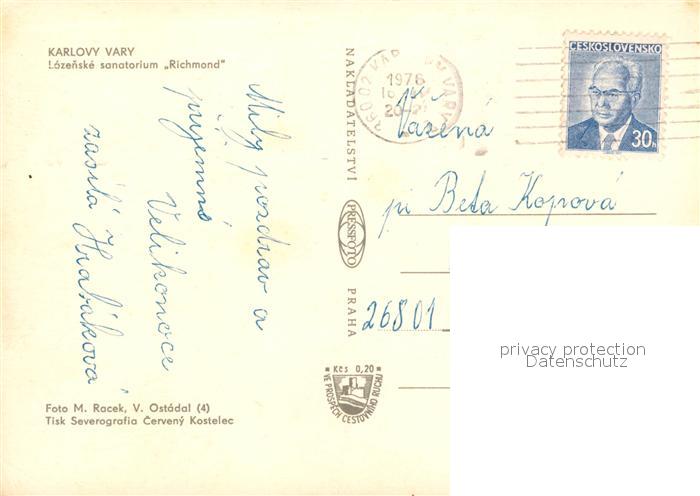 KARLOVY VARY
Lázeňské sanatorium „Richmond"
Milý pozdrav a
příjemné
Velikonoce
zasílá Hrabáková
Foto M. Racek, V. Ostádal (4)
Tisk Severografia Červený Kostelec
NAKLADATELSTVÍ
PRESSFOTO
PRAHA
Kčs 0,20
VE PROSPĚCH CESTOVNÍHO RUCHU
36002 VARY
1978
ČESKOSLOVENSKO
30h
Vážená
pí Beta Kopová
26801
privacy protection
Datenschutz